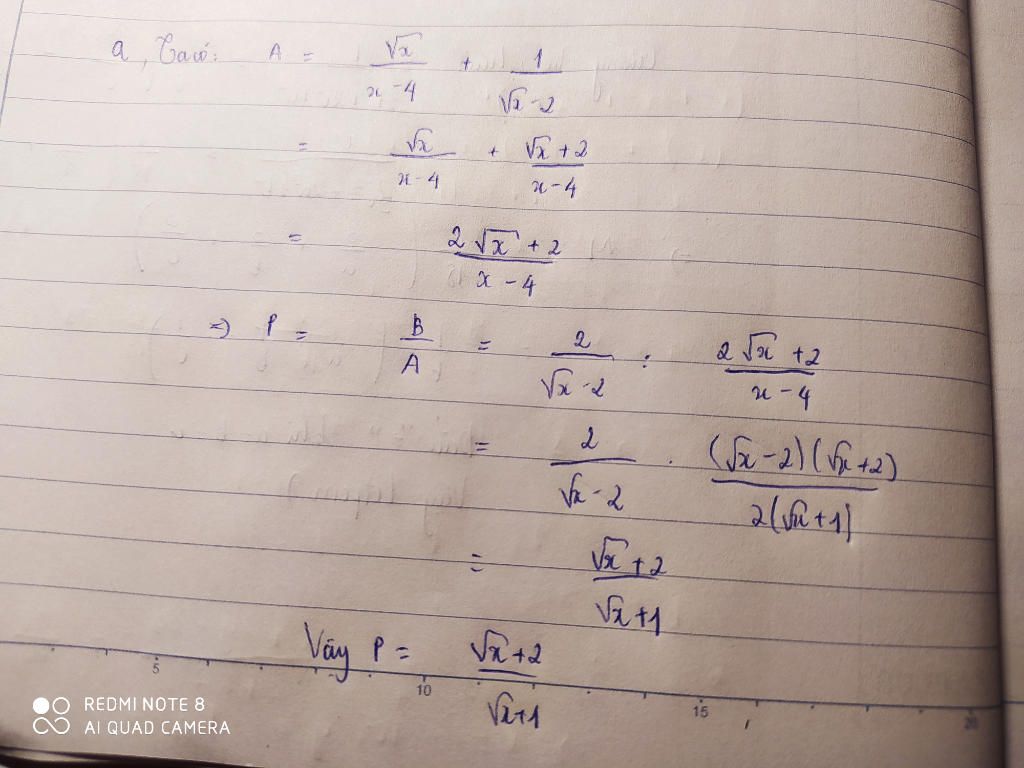 a, Ta có: A = √x / x-4 + 1 / √x-2
= √x / x-4 + √x+2 / x-4
= 2√x + 2 / x-4
=> P = B / A = 2 / √x-2 : 2√x+2 / x-4
= 2 / √x-2 . (√x-2)(√x+2) / 2(√x+1)
= √x+2 / √x+1
Vậy P = √x+2 / √x+1
5 10 15 20
REDMI NOTE 8
AI QUAD CAMERA